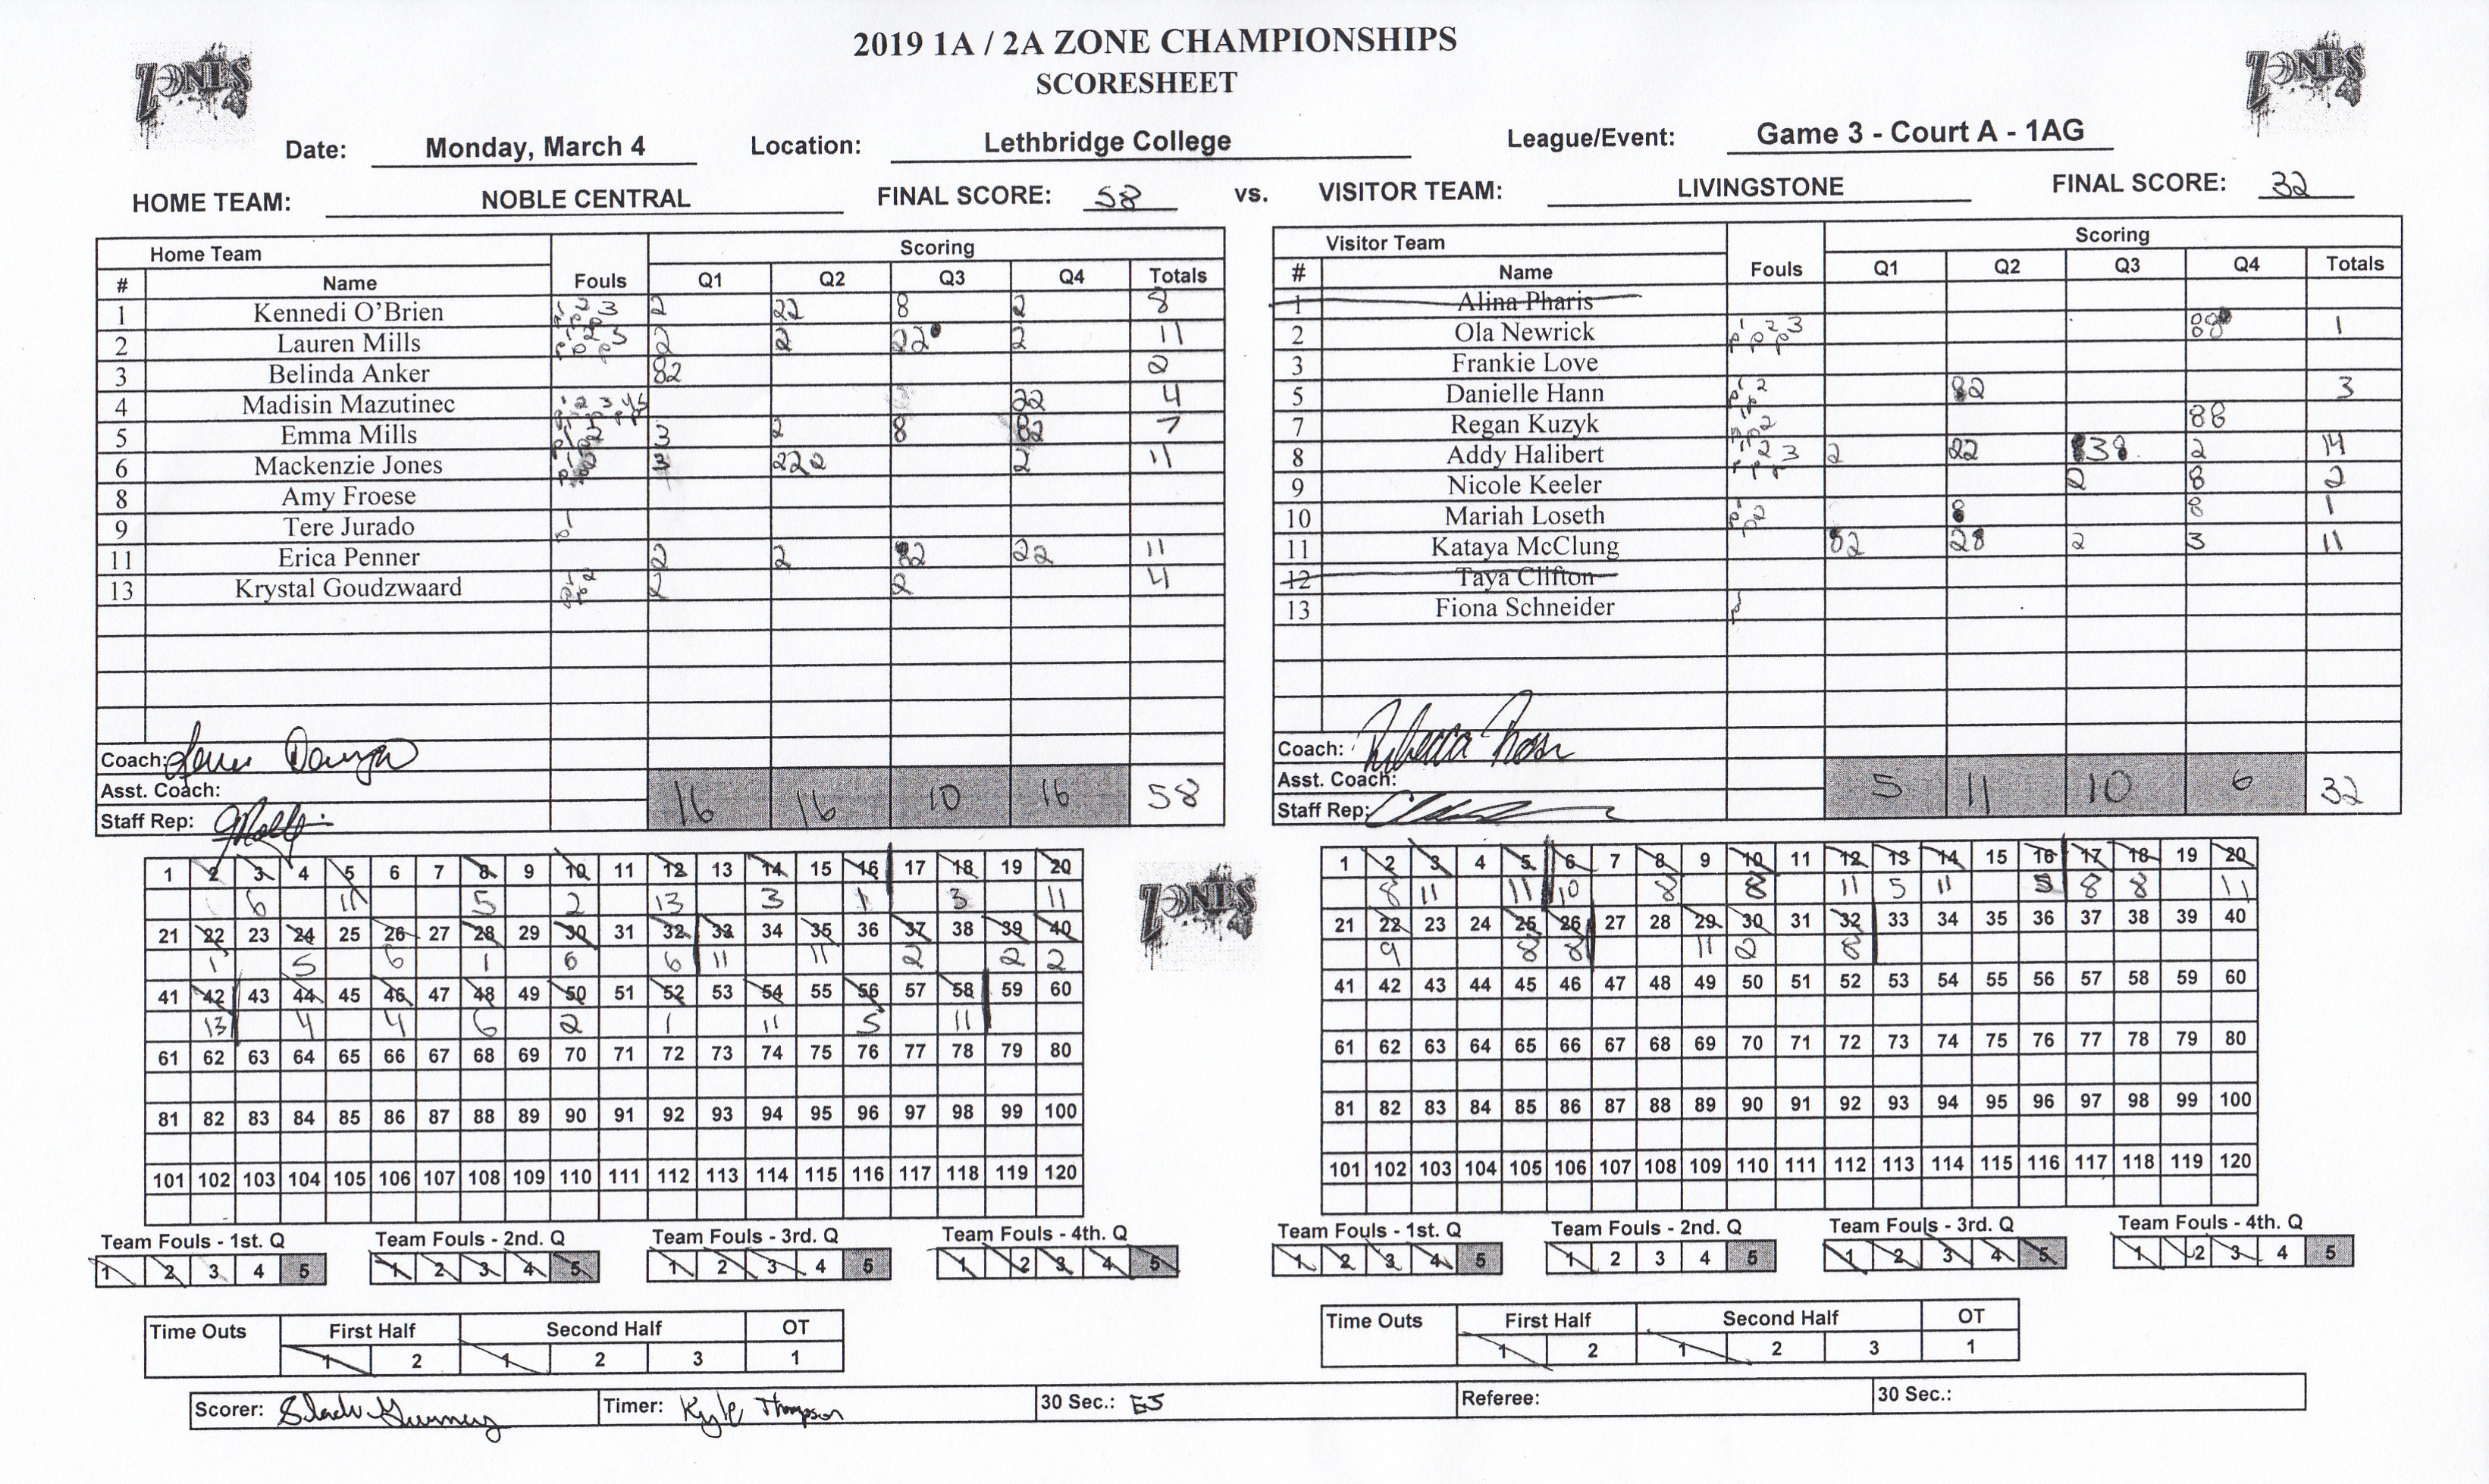 2019 1A / 2A ZONE CHAMPIONSHIPS
SCORESHEET
ZONES
ZONES
Date: Monday, March 4 Location: Lethbridge College League/Event: Game 3 - Court A - 1AG
HOME TEAM: NOBLE CENTRAL FINAL SCORE: 58 vs. VISITOR TEAM: LIVINGSTONE FINAL SCORE: 32
Home Team Scoring
# Name Fouls Q1 Q2 Q3 Q4 Totals
1 Kennedi O'Brien 2 22 8 2 8
2 Lauren Mills 2 2 22 2 11
3 Belinda Anker 82 2
4 Madisin Mazutinec 22 4
5 Emma Mills 3 2 8 82 7
6 Mackenzie Jones 3 222 2 11
8 Amy Froese
9 Tere Jurado
11 Erica Penner 2 2 82 22 11
13 Krystal Goudzwaard 2 2 4
Coach:
Asst. Coach:
Staff Rep:
16 16 10 16 58
Visitor Team Scoring
# Name Fouls Q1 Q2 Q3 Q4 Totals
1 Alina Pharis
2 Ola Newrick 1
3 Frankie Love
5 Danielle Hann 82 3
7 Regan Kuzyk 88
8 Addy Halibert 2 22 38 2 14
9 Nicole Keeler 2 8 2
10 Mariah Loseth 8 8 1
11 Kataya McClung 82 28 2 3 11
12 Taya Clifton
13 Fiona Schneider
Coach: Rebecca
Asst. Coach:
Staff Rep:
5 11 10 6 32
1 2 3 4 5 6 7 8 9 10 11 12 13 14 15 16 17 18 19 20
6 11 5 2 13 3 1 3 11
21 22 23 24 25 26 27 28 29 30 31 32 33 34 35 36 37 38 39 40
1 5 6 1 6 6 11 11 2 2 2
41 42 43 44 45 46 47 48 49 50 51 52 53 54 55 56 57 58 59 60
13 4 4 6 2 1 11 5 11
61 62 63 64 65 66 67 68 69 70 71 72 73 74 75 76 77 78 79 80
81 82 83 84 85 86 87 88 89 90 91 92 93 94 95 96 97 98 99 100
101 102 103 104 105 106 107 108 109 110 111 112 113 114 115 116 117 118 119 120
ZONES
1 2 3 4 5 6 7 8 9 10 11 12 13 14 15 16 17 18 19 20
8 11 11 10 8 8 11 5 11 5 8 8 11
21 22 23 24 25 26 27 28 29 30 31 32 33 34 35 36 37 38 39 40
9 8 8 11 2 8
41 42 43 44 45 46 47 48 49 50 51 52 53 54 55 56 57 58 59 60
61 62 63 64 65 66 67 68 69 70 71 72 73 74 75 76 77 78 79 80
81 82 83 84 85 86 87 88 89 90 91 92 93 94 95 96 97 98 99 100
101 102 103 104 105 106 107 108 109 110 111 112 113 114 115 116 117 118 119 120
Team Fouls - 1st. Q Team Fouls - 2nd. Q Team Fouls - 3rd. Q Team Fouls - 4th. Q
1 2 3 4 5 1 2 3 4 5 1 2 3 4 5 1 2 3 4 5
Team Fouls - 1st. Q Team Fouls - 2nd. Q Team Fouls - 3rd. Q Team Fouls - 4th. Q
1 2 3 4 5 1 2 3 4 5 1 2 3 4 5 1 2 3 4 5
Time Outs First Half Second Half OT
1 2 1 2 3 1
Time Outs First Half Second Half OT
1 2 1 2 3 1
Scorer: Timer: Kyle Thompson 30 Sec.: EJ Referee: 30 Sec.: